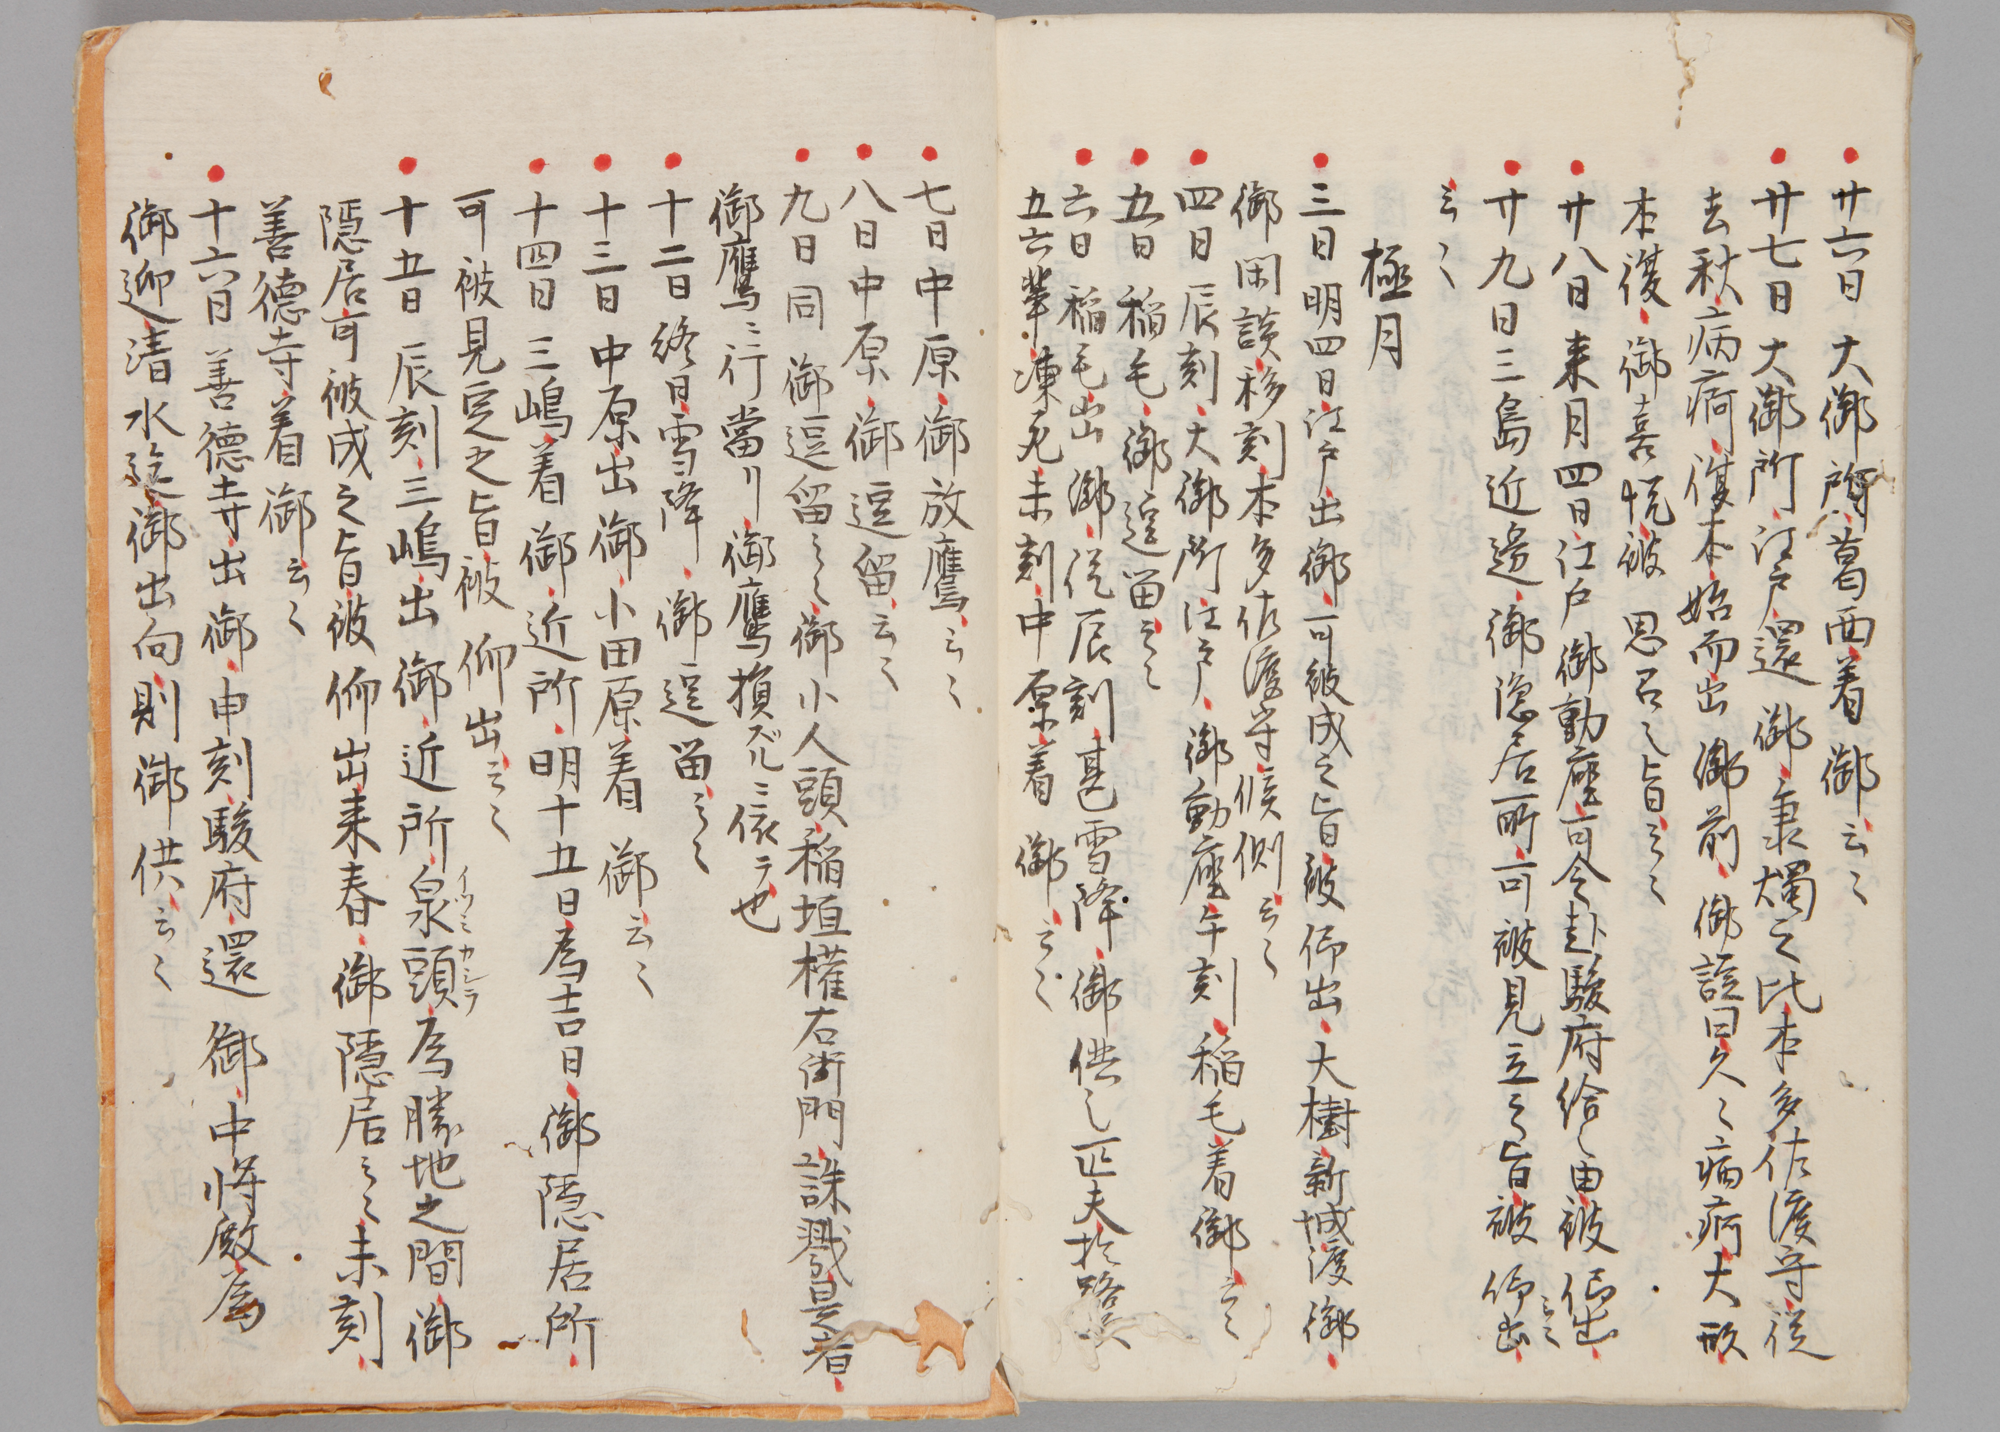 廿六日大御所葛西着御云〻
廿七日大御所江戸還御秉燭之比本多佐渡守従
去秋病痾復本始而出御前御諚曰久〻病痾大形
本復御喜悦被思召之旨云〻
廿八日来月四日江戸御動座可令赴駿府給之由被仰出
云〻
廿九日三島近邊御隠居所可被見立之旨被仰出
云〻
極月
三日明四日江戸出御可被成之旨被仰出大樹新城渡御
御閑談移刻本多佐渡守候側云〻
四日辰刻大御所江戸御動座午刻稲毛着御云〻
五日稲毛御逗留云〻
六日稲毛出御従辰刻甚雪降御供之疋夫於路次
五六輩凍死未刻中原着御云〻
七日中原御放鷹云〻
八日中原御逗留云〻
九日同御逗留云〻御小人頭稲垣權右衛門誅戮是者
御鷹ニ行當リ御鷹損ズルニ依テ也
十二日終日雪降御逗留云〻
十三日中原出御小田原着御云〻
十四日三嶋着御近所明十五日為吉日御隠居所
可被見定之旨被仰出云〻
十五日辰刻三嶋出御近所泉頭為勝地之間御
イツミカシラ
隠居可被成之旨被仰出来春御隠居云〻未刻
善徳寺着御云〻
十六日善徳寺出御申刻駿府還御中将殿為
御迎清水迄御出向則御供云〻